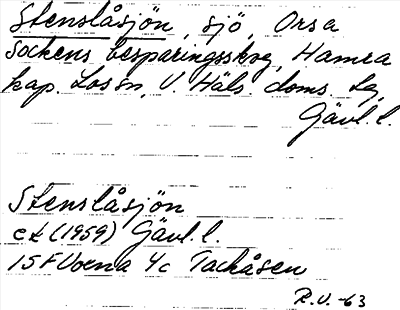 Stenslåsjön, sjö, Orsa
sockens besparingsskog, Hamra
kap. Los sn, V. Häls. doms. lag,
Gävl. l.
Stenslåsjön
ek (1959) Gävl. l.
15F Voxna 4c Tackåsen
R.U. -63